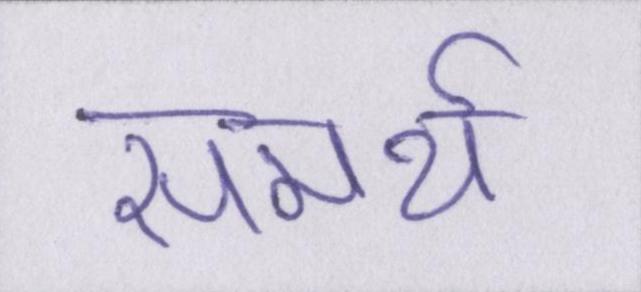 समर्थ